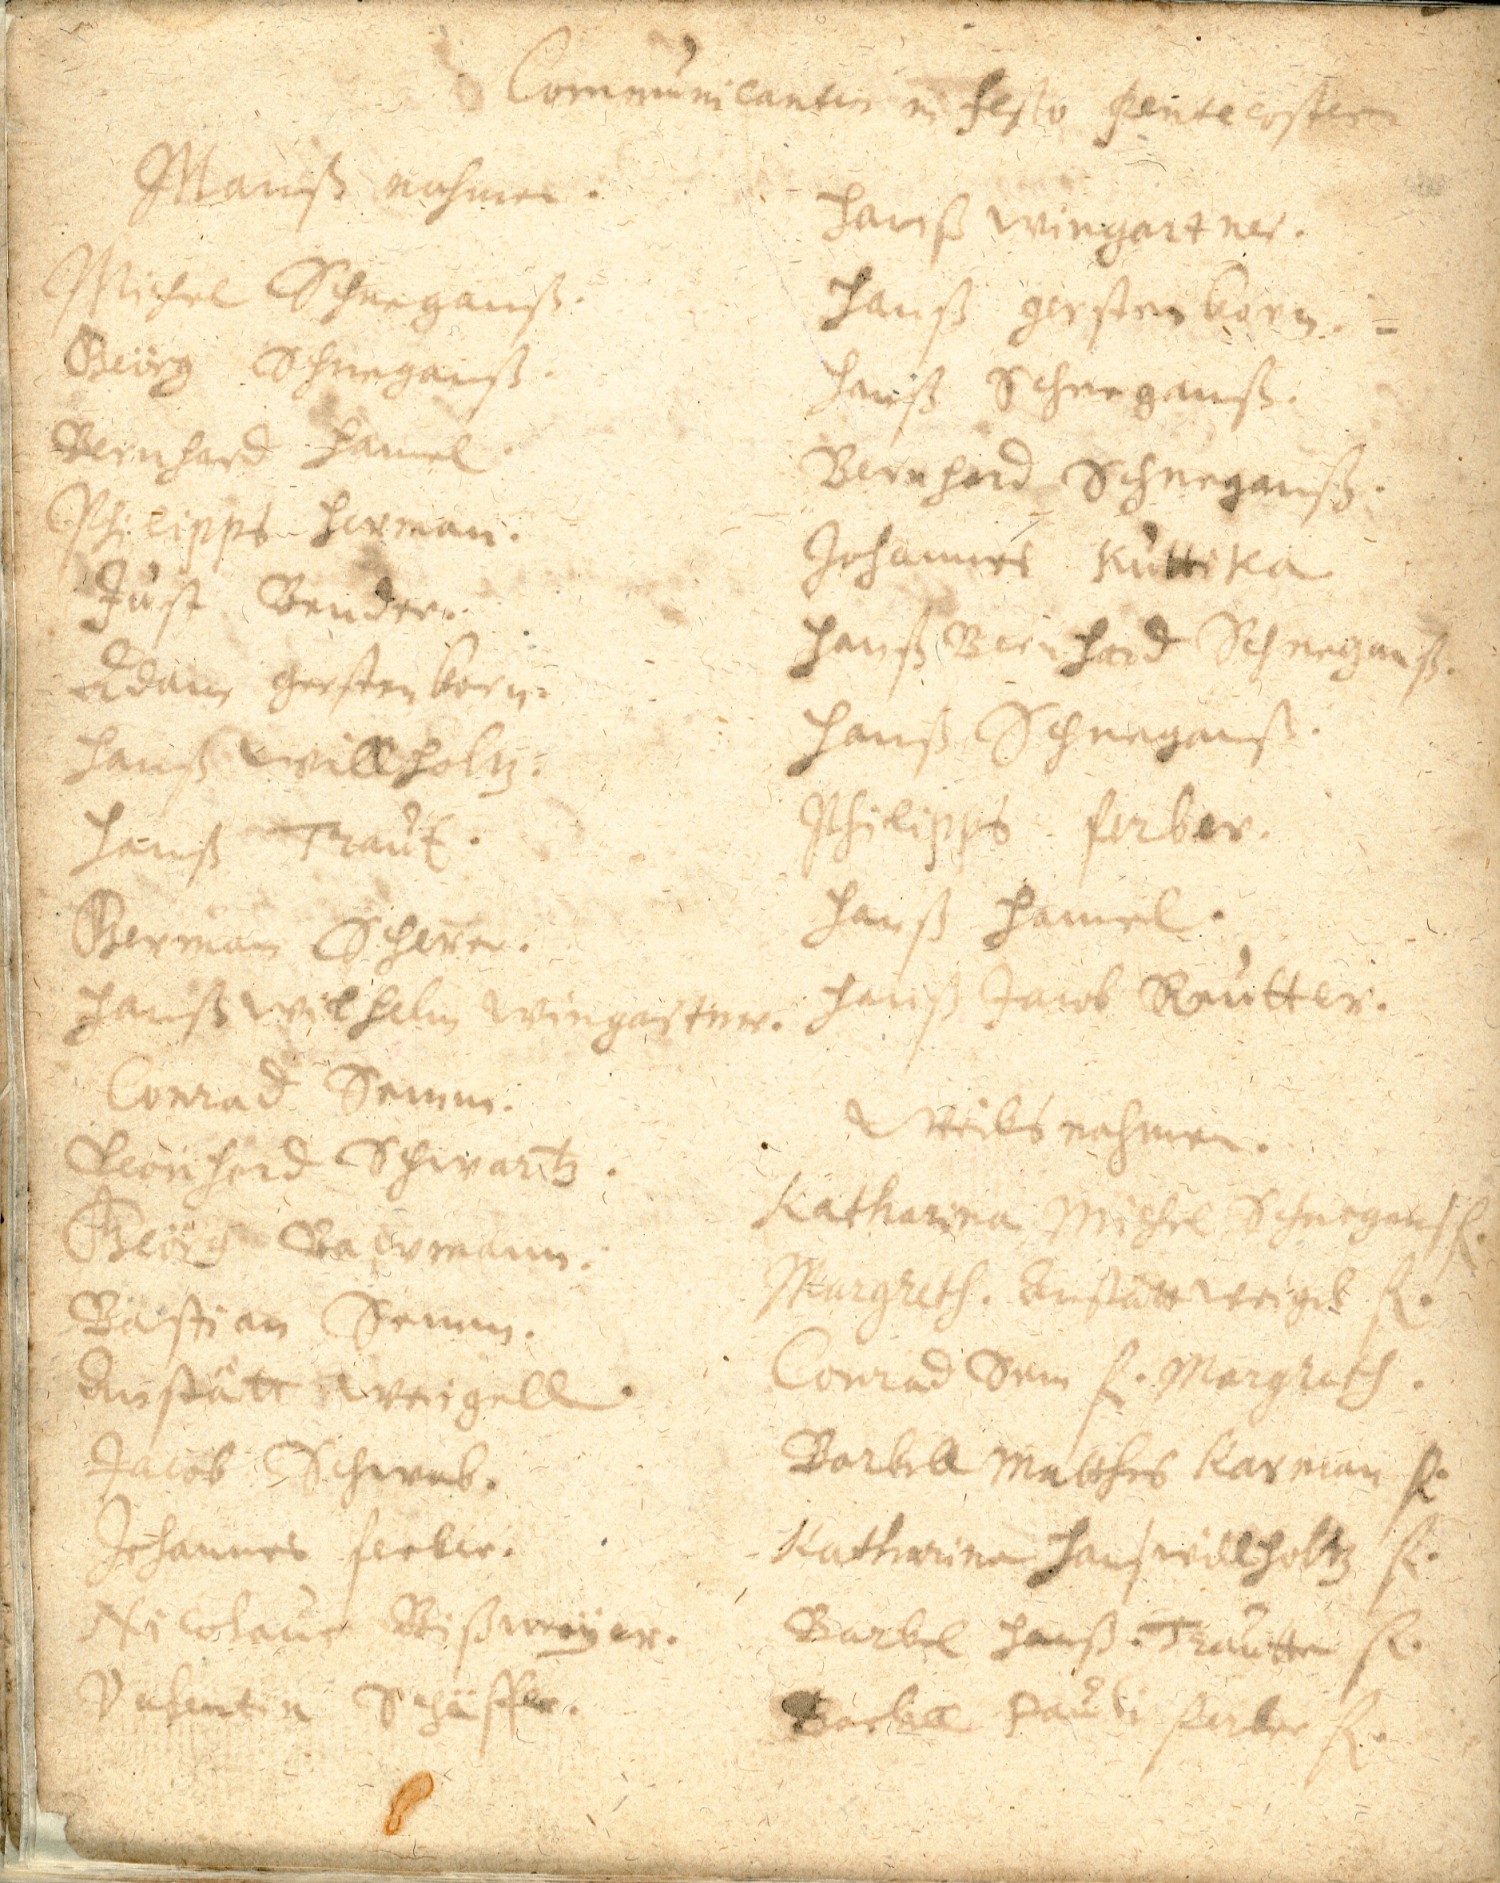 Communicantes in festo Pentecostes
Manß nahmen.
Michel Schnegauß.
Georg Schnegauß.
Bernhard Hamel.
Philipps Herman.
Just Bender.
Adam gerstenkorn.
Hanß Willholtz.
Hanß Traut.
German Scherer.
Hanß Wilhelm Wingartner.
Conrad Semm.
Leonhard Schwartz.
Georg Bawrmann.
Bastian Semm.
Anstätt Weigell.
Jacob Schwab.
Johannes ferber.
Nicolaus Bißmeyer.
Valentin Schäffer.
Hanß Wingartner.
Hanß gerstenkorn.
Hanß Schnegauß.
Bernhard Schnegauß.
Johannes Kuttika
Hanß Bernhard Schnegauß.
Hanß Schnegauß.
Philipps ferber.
Hanß Hamel.
Hanß Jacob Reutter.
Weibs nahmen.
Katharina Michel Schnegauß f.
Margreth. Anstätt Weigels f.
Conrad Sem f. Margreth.
Barbell Matthes Karman f.
Katharina Hanß willholtz f.
Barbel Hanß Trautten f.
Barbell Pauli ferber f.